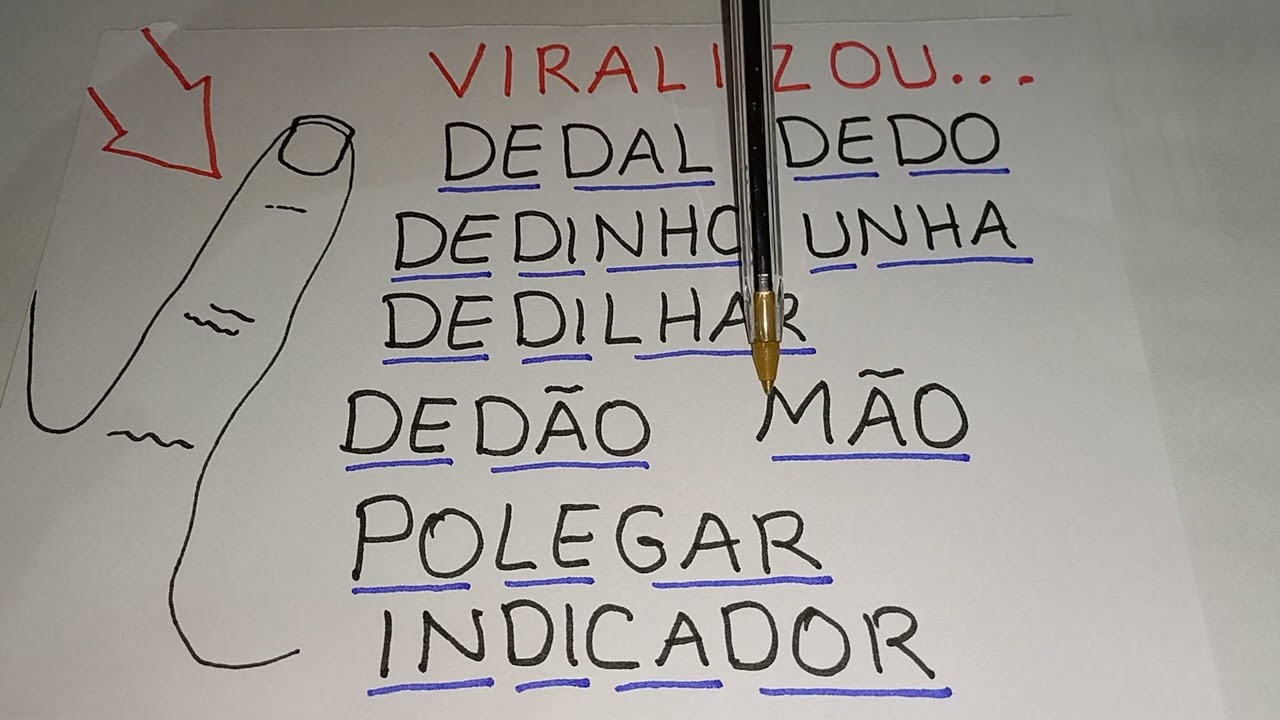 VIRALIZOU...
DEDAL DEDO
DEDINHO UNHA
DEDILHAR
DEDÃO MÃO
POLEGAR
INDICADOR